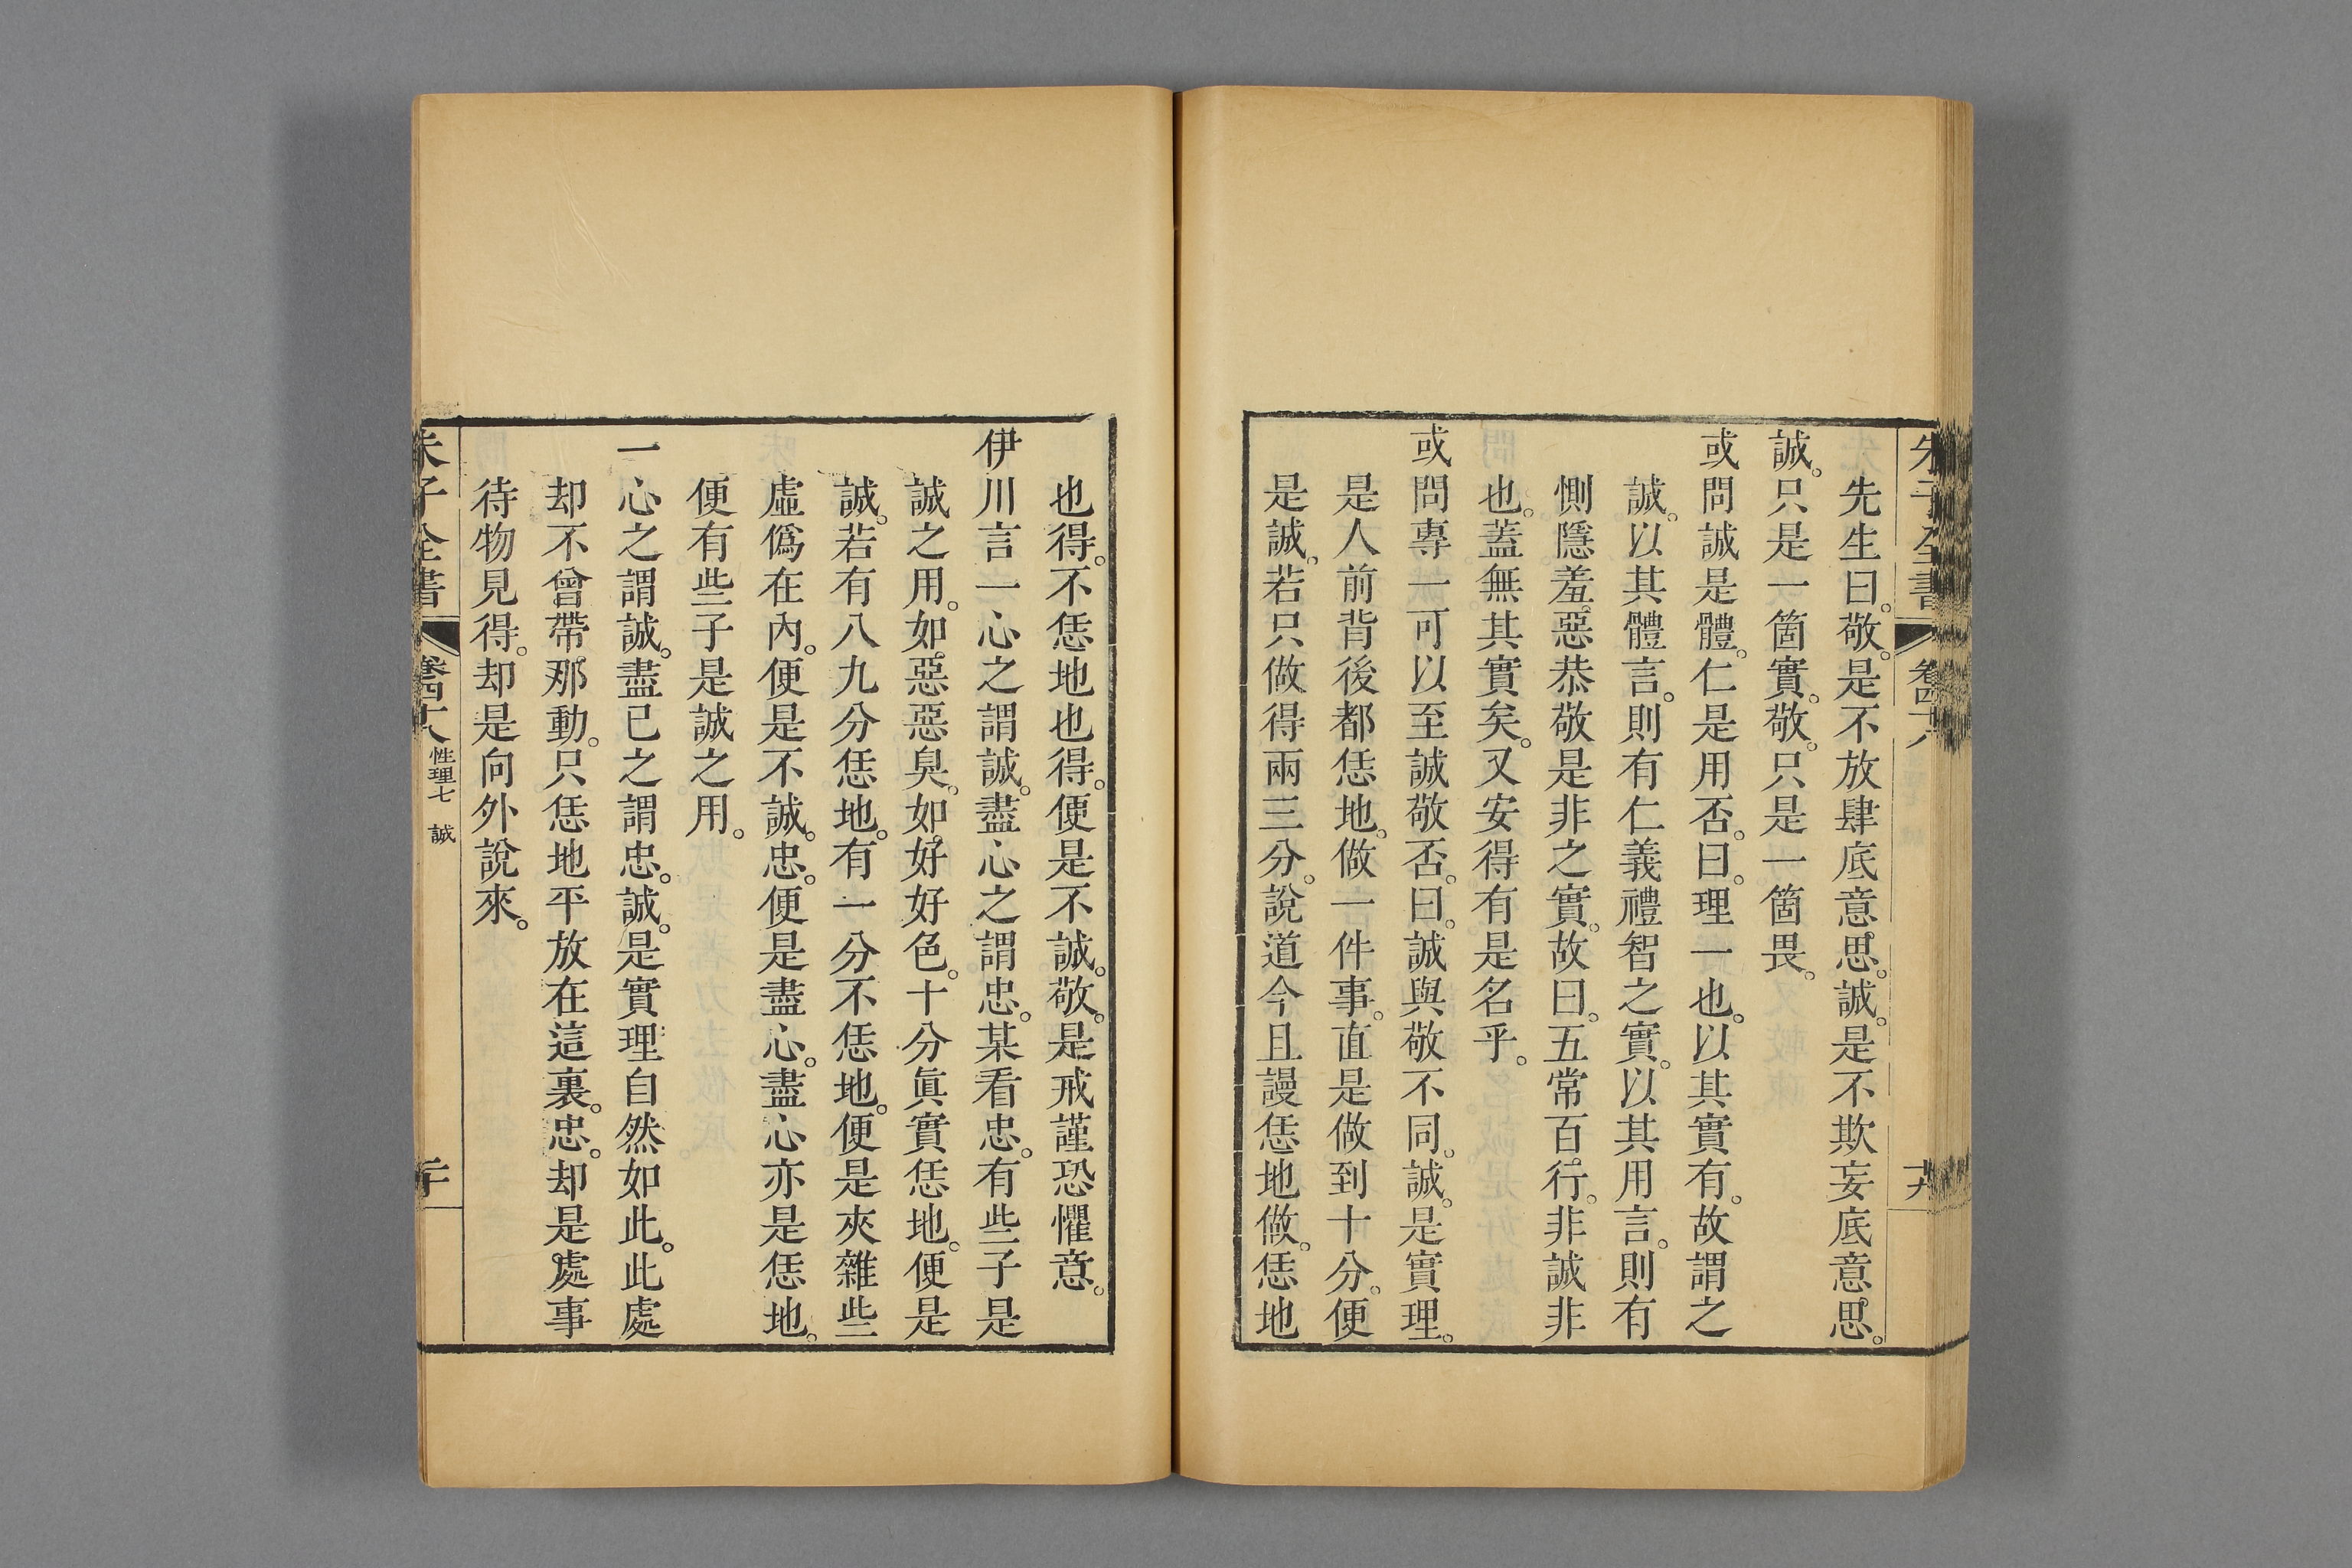 朱子全書 卷四十八 十九
先生曰。敬。是不放肆底意思。誠。是不欺妄底意思。
誠。只是一箇實。敬。只是一箇畏。
或問誠是體。仁是用否。曰。理一也。以其實有。故謂之
誠。以其體言。則有仁義禮智之實。以其用言。則有
惻隱羞惡恭敬是非之實。故曰。五常百行。非誠非
也。蓋無其實矣。又安得有是名乎。
或問專一可以至誠敬否。曰。誠與敬不同。誠。是實理。
是人前背後都恁地。做一件事。直是做到十分。便
是誠。若只做得兩三分。說道今且謾恁地做。恁地
也得。不恁地也得。便是不誠。敬。是戒謹恐懼意。
伊川言一心之謂誠。盡心之謂忠。某看忠。有些子是
誠之用。如惡惡臭。如好好色。十分眞實恁地。便是
誠。若有八九分恁地。有一分不恁地。便是夾雜些
虛僞在內。便是不誠。忠。便是盡心。盡心亦是恁地。
便有些子是誠之用。
一心之謂誠。盡已之謂忠。誠。是實理自然如此。此處
却不曾帶那動。只恁地平放在這裏。忠。却是處事
待物見得。却是向外說來。
朱子全書 卷四十八 性理七 誠 二十